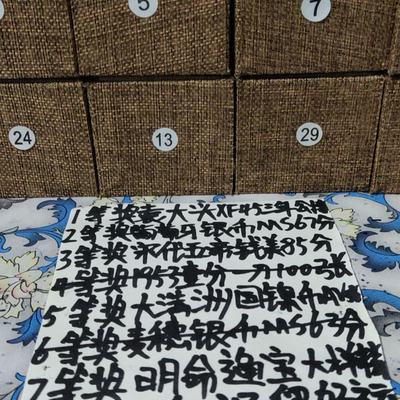 5
7
24
13
29
1等奖袁大头XF45三年
2等奖 马银币MS67分
3等奖宋代五帝钱美85分
4等奖1953壹分一分100张
5等奖大满洲国镍币MS
6等奖麦穗银币MS63分
7等奖明命通宝大样